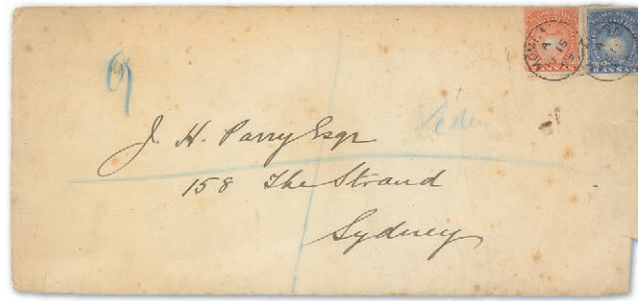 J. H. Parry Esqr
158 The Strand
Sydney